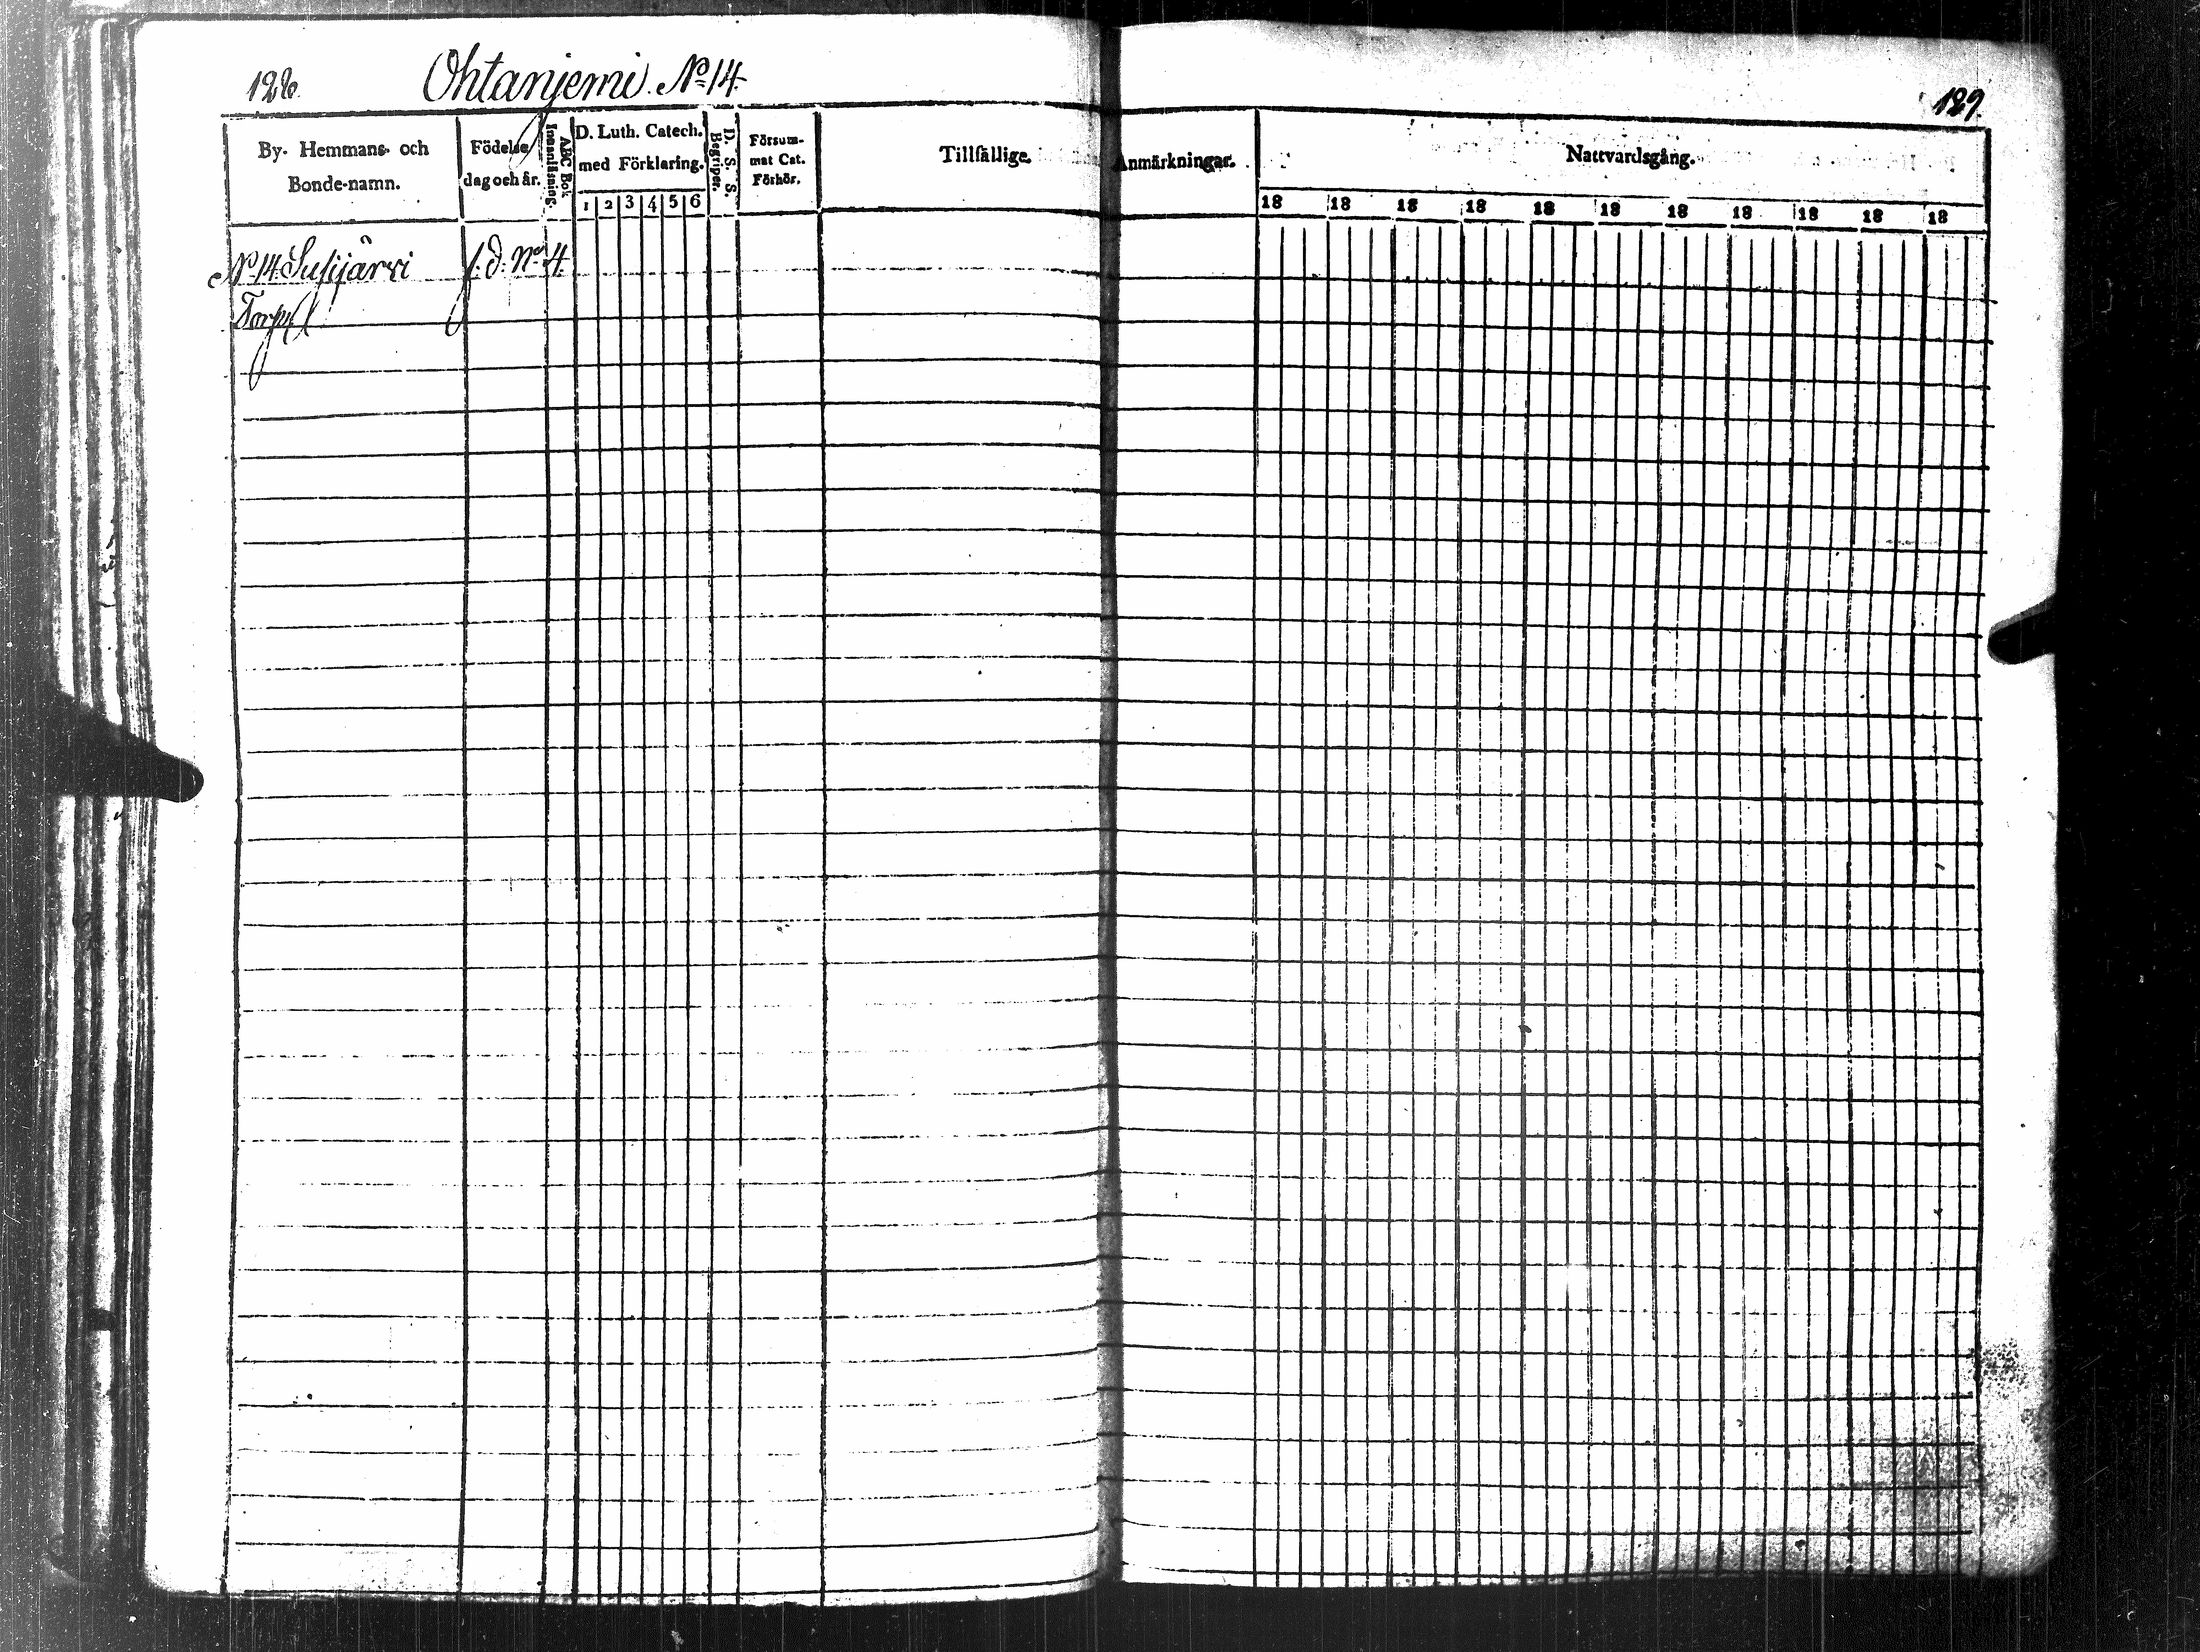 128.
Ohtanjemi. No 14.
129.
By- Hemmans- och
Bonde-namn.
Födelse
dag och år.
ABC Bok
Innanläsning.
D. Luth. Catech.
med Förklaring.
1 2 3 4 5 6
D. S. S.
Begriper.
Försum-
mat Cat.
Förhör.
Tillfällige Anmärkningar.
Nattvardsgång.
18 18 18 18 18 18 18 18 18 18 18
No 14. Susijärvi
f: d: No 4.
Torp